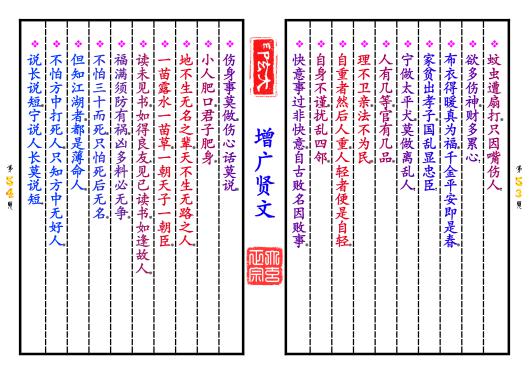 第53页
蚊虫遭扇打。只因嘴伤人。
欲多伤神。财多累心。
布衣得暖真为福。千金平安即是春。
家贫出孝子。国乱显忠臣。
宁做太平犬。莫做离乱人。
人有几等。官有几品。
理不卫亲。法不为民。
自重者然后人重。人轻者便是自轻。
自身不谨。扰乱四邻。
快意事过非快意。自古败名因败事。
增广贤文
伤身事莫做。伤心话莫说。
小人肥口。君子肥身。
地不生无名之辈。天不生无路之人。
一苗露水一苗草。一朝天子一朝臣。
读未见书如得良友。见已读书如逢故人。
福满须防有祸。凶多料必无争。
不怕三十而死。只怕死后无名。
但知江湖者。都是薄命人。
不怕方中打死人。只知方中无好人。
说长说短。宁说人长莫说短。
第54页